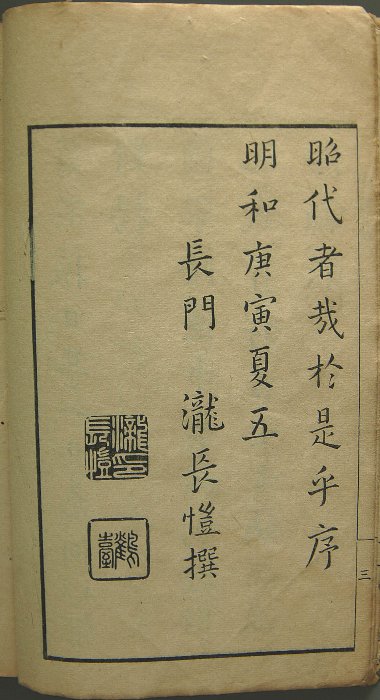 昭代者哉於是乎序
明和庚寅夏五
長門 瀧長愷撰
瀧長愷印
鶴臺
三